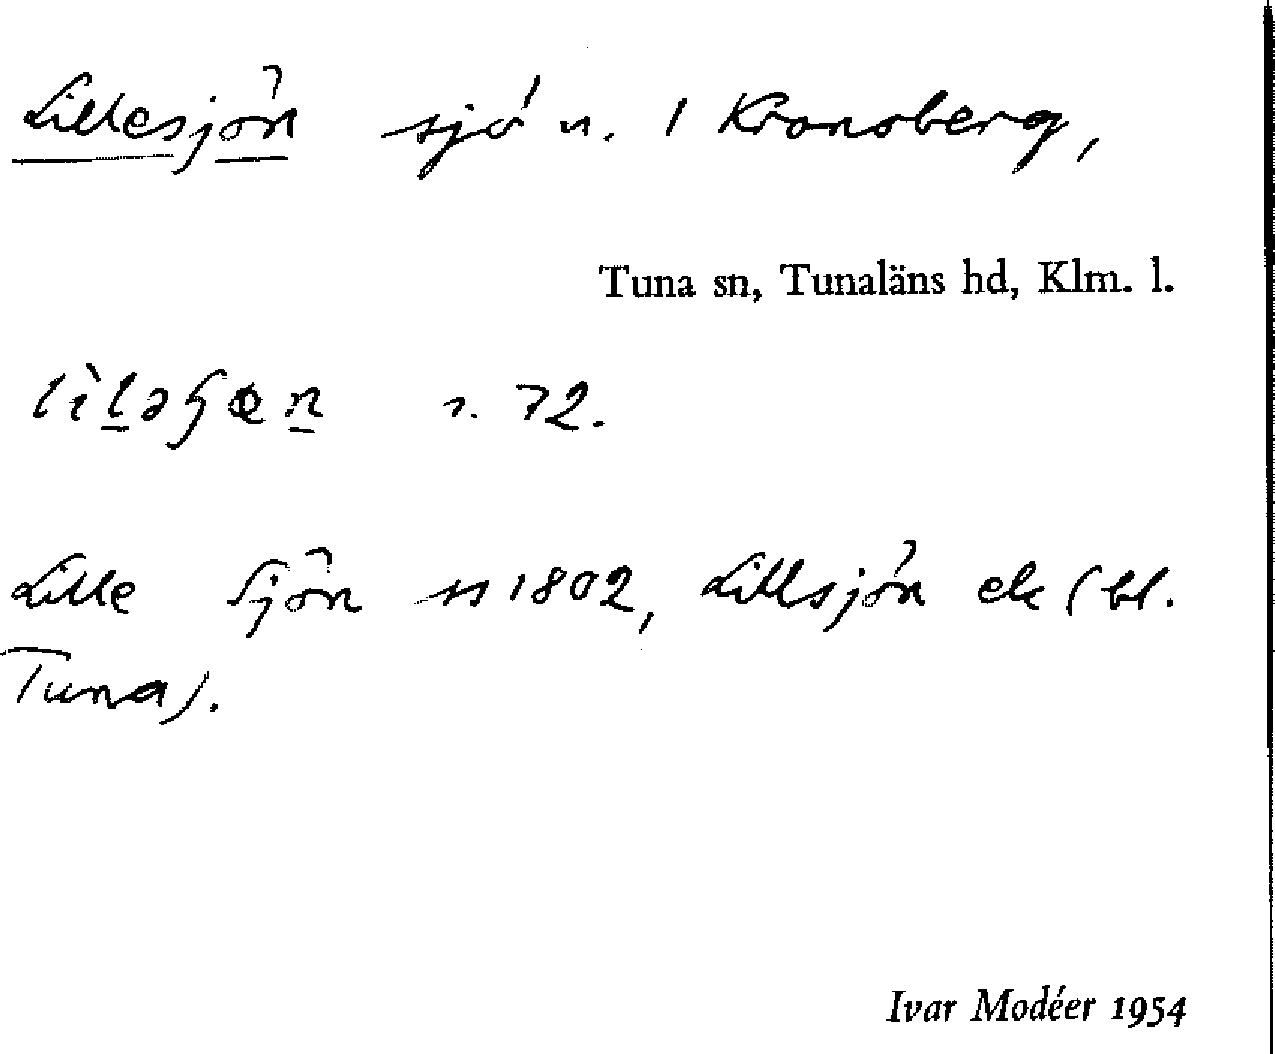 Lillesjön sjö n. 1 Kronsberg,
Tuna sn, Tunaläns hd, Klm. l.
s. 72.
Lille Sjön ss 1802, Lillsjön ek (bl.
Tuna).
Ivar Modéer 1954